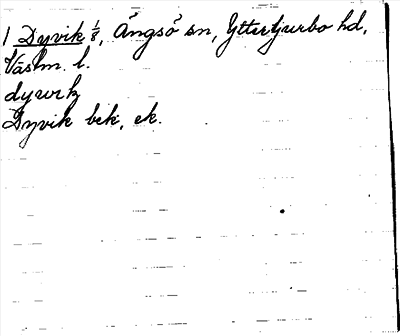 1 Dyvik 1/8, Ängsö sn, Yttertjurbo hd,
Västm. l.
dyvik
Dyvik bek, ek.